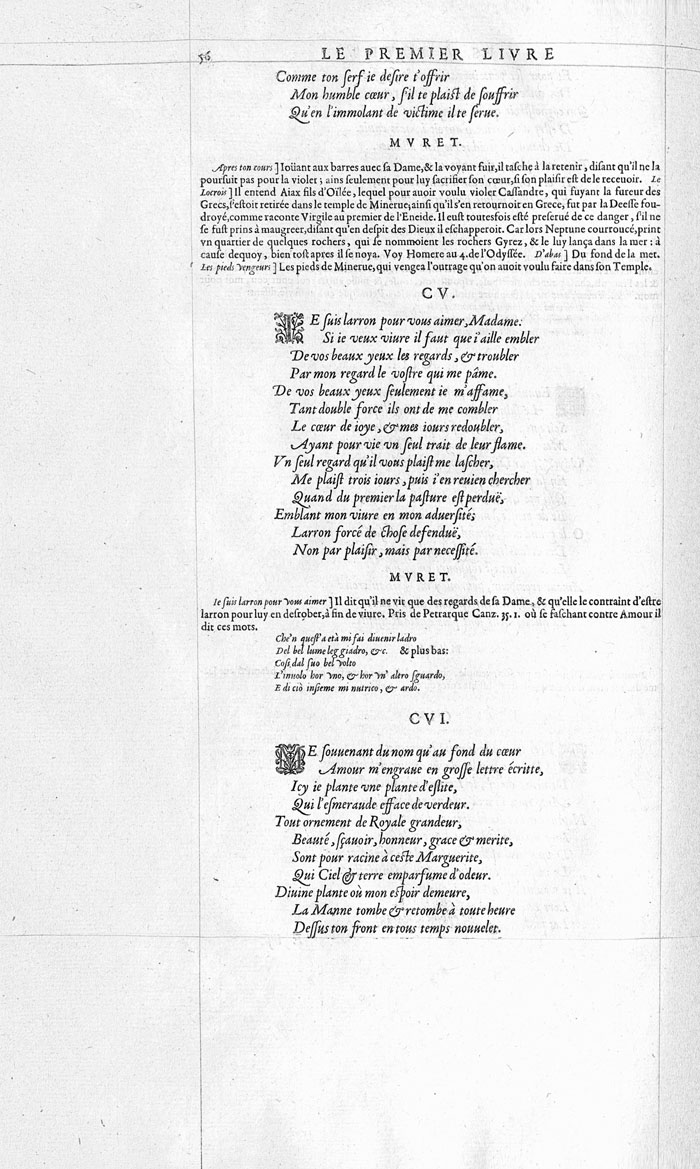 56 LE PREMIER LIVRE
Comme ton ſerf ie deſire t'offrir
Mon humble cœur, ſ'il te plaiſt de ſouffrir
Qu'en l'immolant de victime il te ſerue.
MVRET.
Apres ton cours ] Ioüant aux barres auec ſa Dame,& la voyant fuir,il taſche à la retenir, diſant qu'il ne la
pourſuit pas pour la violer ; ains ſeulement pour luy ſacrifier ſon cœur,ſi ſon plaiſir eſt de le receuoir. Le
Locrois ] Il entend Aiax fils d'Oïlée, lequel pour auoir voulu violer Caſſandre, qui fuyant la fureur des
Grecs,ſ'eſtoit retirée dans le temple de Minerue;ainſi qu'il s'en retournoit en Grece, fut par la Deeſſe fou-
droyé,comme raconte Virgile au premier de l'Eneide. Il euſt toutesfois eſté preſerué de ce danger , ſ'il ne
ſe fuſt prins à maugreer,diſant qu'en deſpit des Dieux il eſchapperoit. Car lors Neptune courroucé,print
vn quartier de quelques rochers, qui ſe nommoient les rochers Gyrez, & le luy lança dans la mer : à
cauſe dequoy, bien toſt apres il ſe noya. Voy Homere au 4.de l'Odyſſée. D'abas ] Du fond de la mer.
Les pieds vengeurs ] Les pieds de Minerue,qui vengea l'outrage qu'on auoit voulu faire dans ſon Temple.
CV.
IE ſuis larron pour vous aimer,Madame:
Si ie veux viure il faut que i'aille embler
De vos beaux yeux les regards, & troubler
Par mon regard le voſtre qui me pâme.
De vos beaux yeux ſeulement ie m'affame,
Tant double force ils ont de me combler
Le cœur de ioye, & mes iours redoubler,
Ayant pour vie vn ſeul trait de leur flame.
Vn ſeul regard qu'il vous plaiſt me laſcher,
Me plaiſt trois iours, puis i'en reuien chercher
Quand du premier la paſture eſt perduë,
Emblant mon viure en mon aduerſité;
Larron forcé de choſe defenduë,
Non par plaiſir, mais par neceſſité.
MVRET.
Ie ſuis larron pour vous aimer ] Il dit qu'il ne vit que des regards de ſa Dame, & qu'elle le contraint d'eſtre
larron pour luy en deſrober,à fin de viure. Pris de Petrarque Canz. 35. 1. où ſe faſchant contre Amour il
dit ces mots.
Che'n queſt'a età mi fai diuenir ladro
Del bel lume leggiadro, &c. & plus bas:
Coſi dal ſuo bel volto
L'inuolo hor vno, & hor vn' altro ſguardo,
E di ciò inſieme mi nutrico, & ardo.
CVI.
ME ſouuenant du nom qu'au fond du cœur
Amour m'engraue en groſſe lettre écritte,
Icy ie plante vne plante d'eſlite,
Qui l'eſmeraude efface de verdeur.
Tout ornement de Royale grandeur,
Beauté, ſçauoir, honneur, grace & merite,
Sont pour racine à ceſte Marguerite,
Qui Ciel & terre emparfume d'odeur.
Diuine plante où mon eſpoir demeure,
La Manne tombe & retombe à toute heure
Deſſus ton front en tous temps nouuelet.